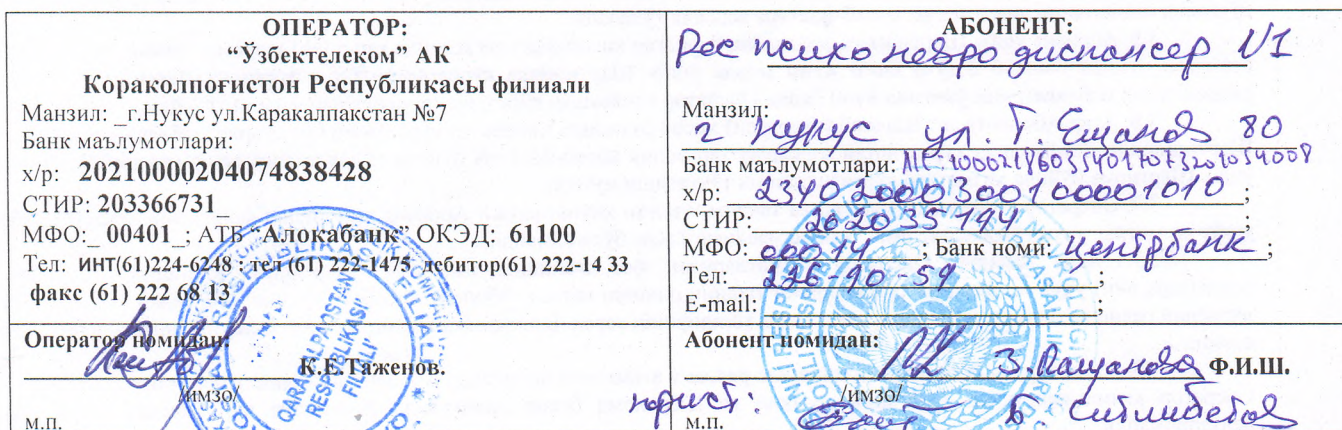 ОПЕРАТОР:
“Ўзбектелеком” АК
Қорақолпоғистон Республикасы филиали
Манзил: _г.Нукус ул.Каракалпакстан №7
Банк маълумотлари:
х/р: 20210000204074838428
СТИР: 203366731_
МФО:_ 00401_; АТБ “Алокабанк” ОКЭД: 61100
Тел: ИНТ(61)224-6248 ; тел (61) 222-1475 дебитор(61) 222-14 33
факс (61) 222 68 13
Оператор номидан:
К.Е.Таженов.
/имзо/
м.п.
QARAQALPAQSTAN
RESPUBLIKASI
FILIALI
АБОНЕНТ:
Рес психо невро диспансер №1
Манзил:
г Нукус ул. Т. Ешанов 80
Банк маълумотлари:
х/р: 23402000300100001010;
СТИР:
МФО: 00014; Банк номи: Центрбанк;
Тел.: 226-90-59;
E-mail:;
Абонент номидан:
Ф.И.Ш.
/имзо/
юрист:
м.п.